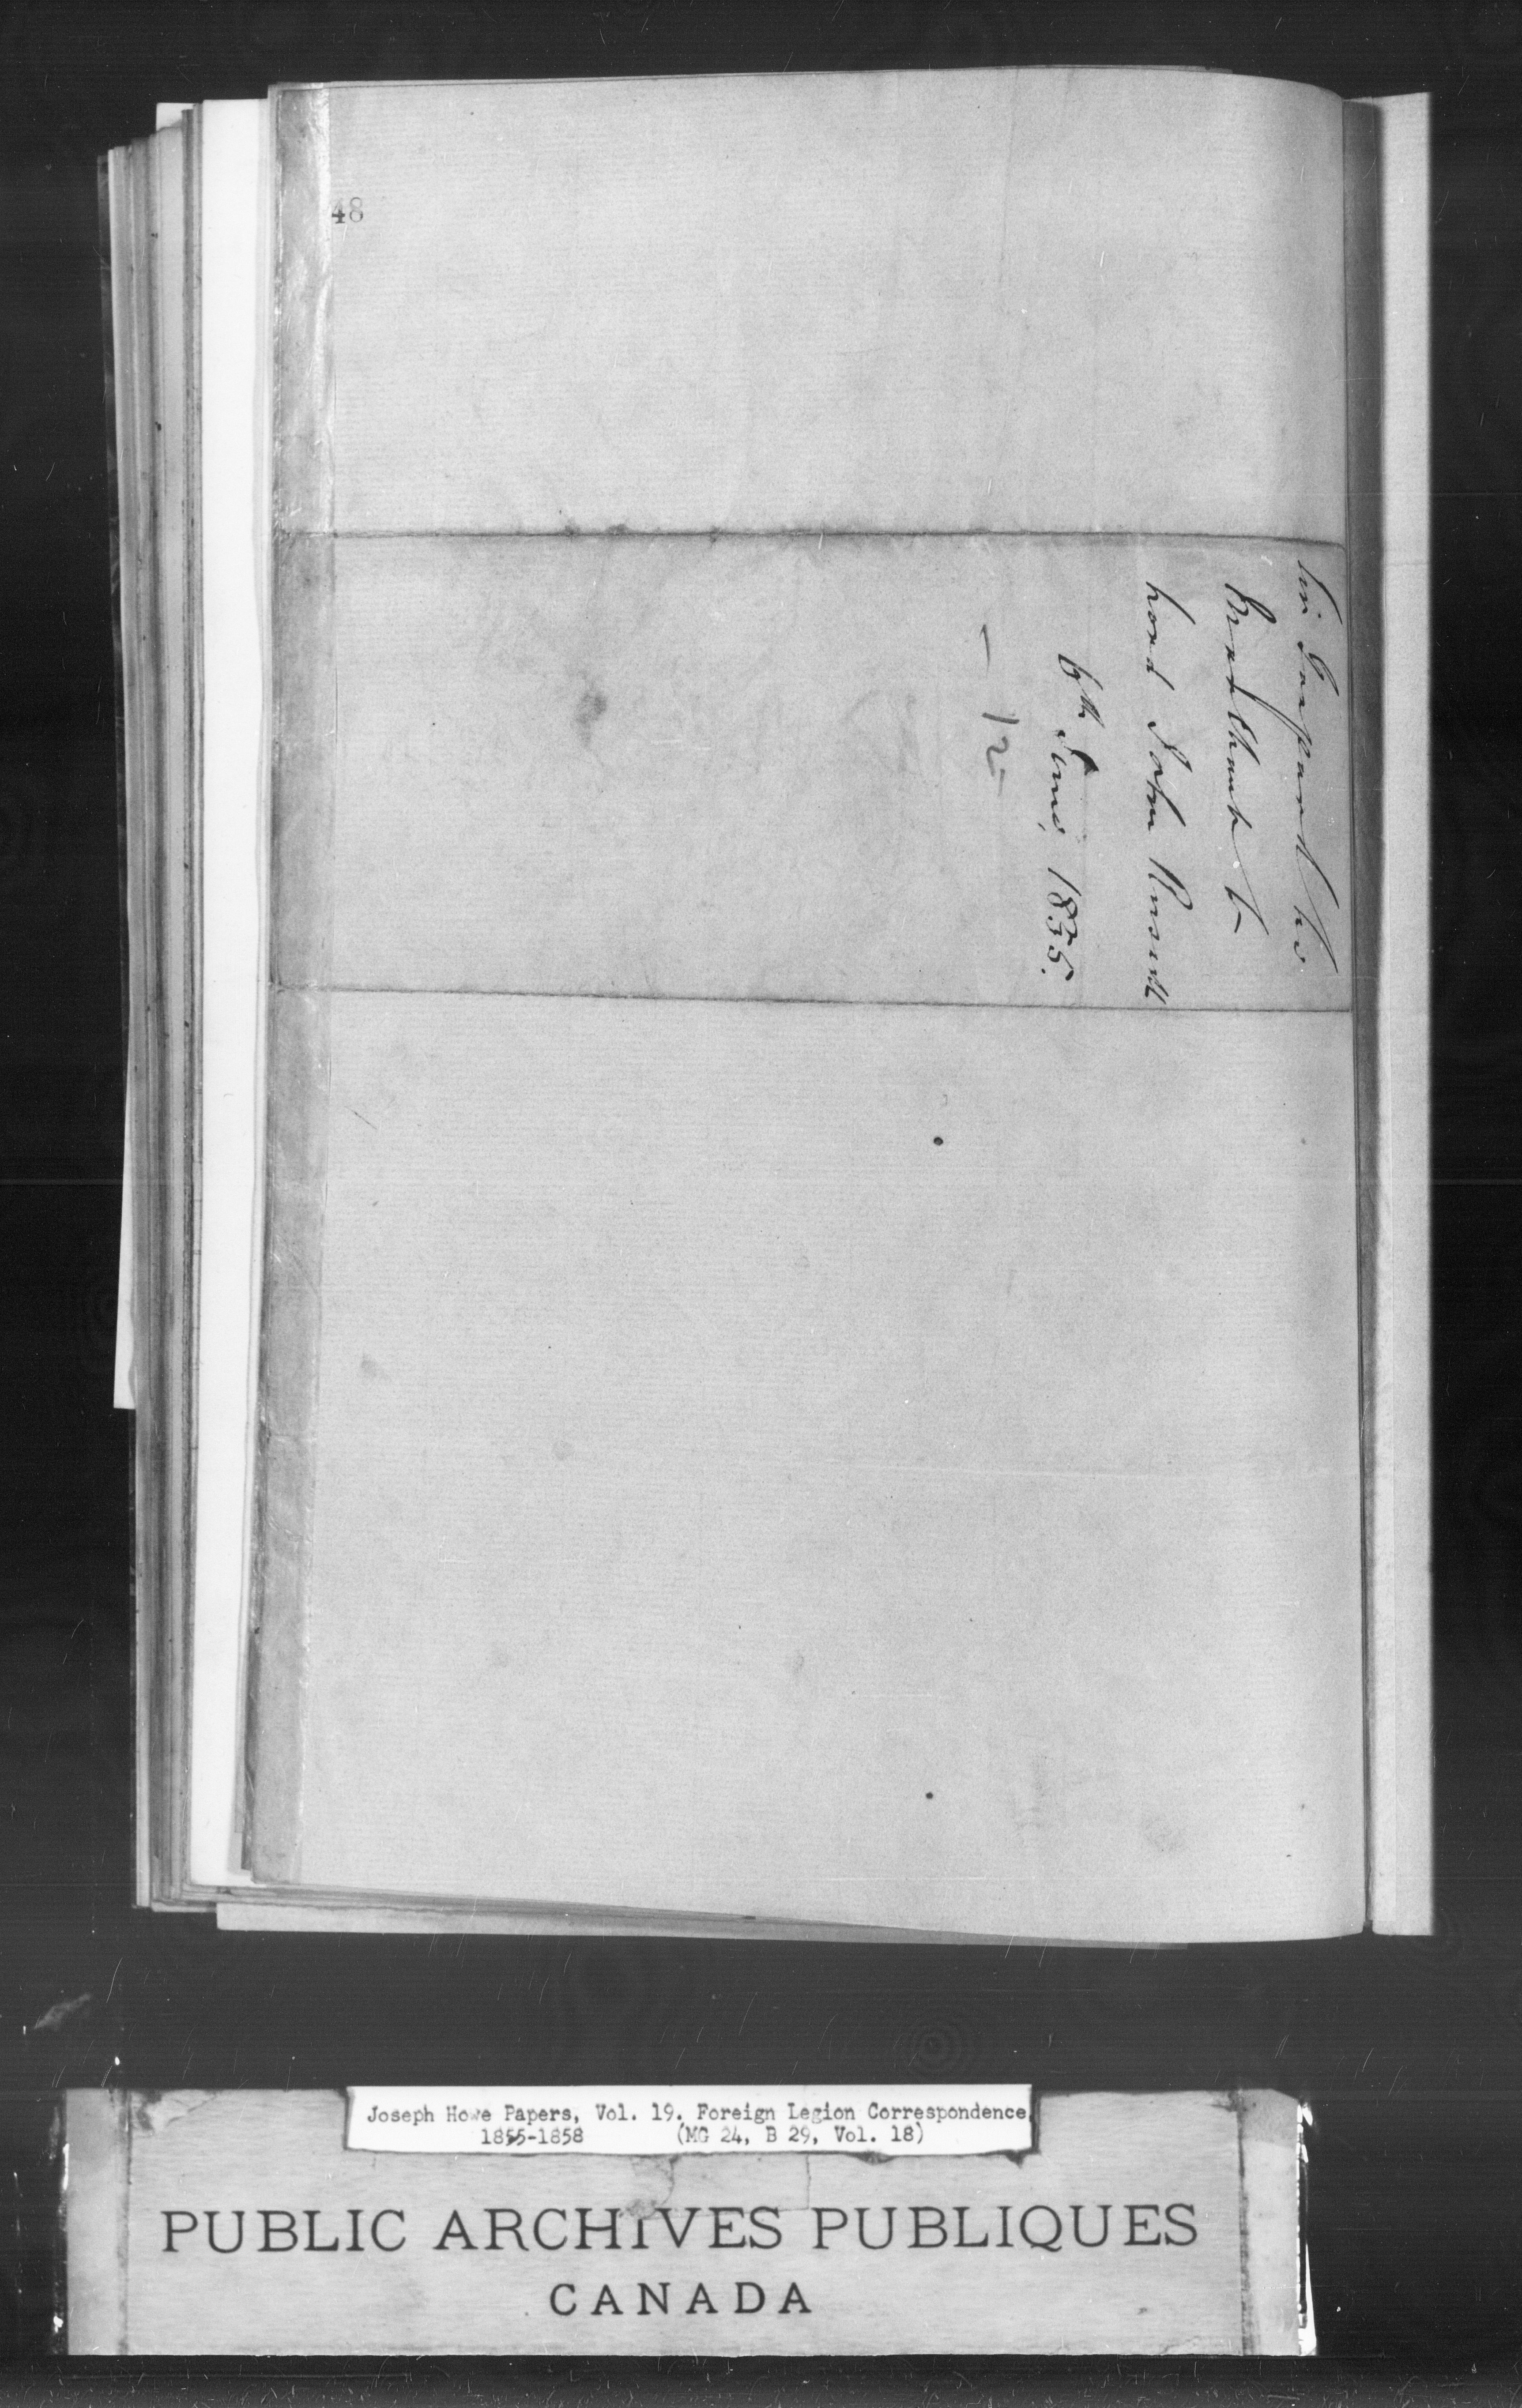 48
Sir Gaspard Le
Marchant to
Lord John Russell
6th June, 1855.
— 12
Joseph Howe Papers, Vol. 19. Foreign Legion Correspondence,
1855-1858 (MG 24, B 29, Vol. 18)
PUBLIC ARCHIVES PUBLIQUES
CANADA